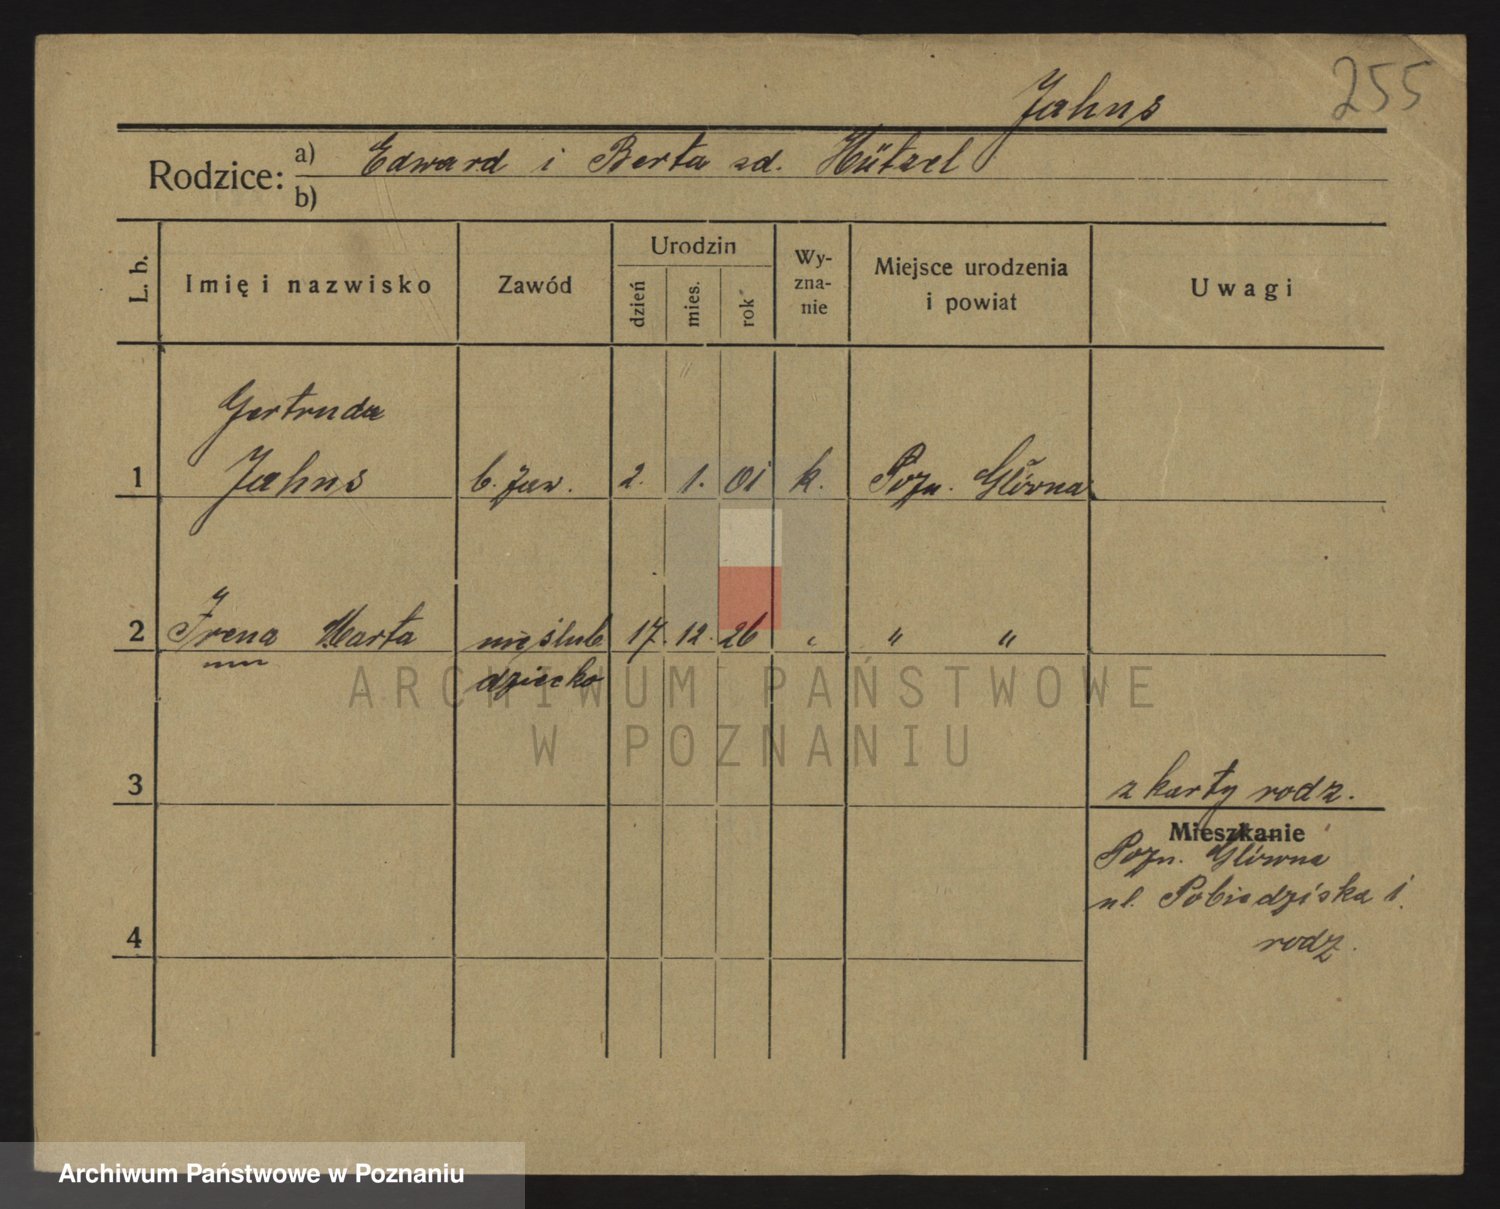 255
Jahns
Rodzice: a) Edward i Berta zd. Hützel
b)
L. b. Imię i nazwisko Zawód Urodzin dzień mies. rok Wy-zna-nie Miejsce urodzenia i powiat Uwagi
Gertruda
1 Jahns b. zaw. 2. 1. 01 k. Pozn. Główna
2 Irena Marta nieślub 17. 12. 26 " " "
dziecko
ARCHIWUM PAŃSTWOWE
W POZNANIU
3 z karty rodz.
Mieszkanie
Pozn. Główna
ul. Pobiedziska 1.
4 rodz.
Archiwum Państwowe w Poznaniu